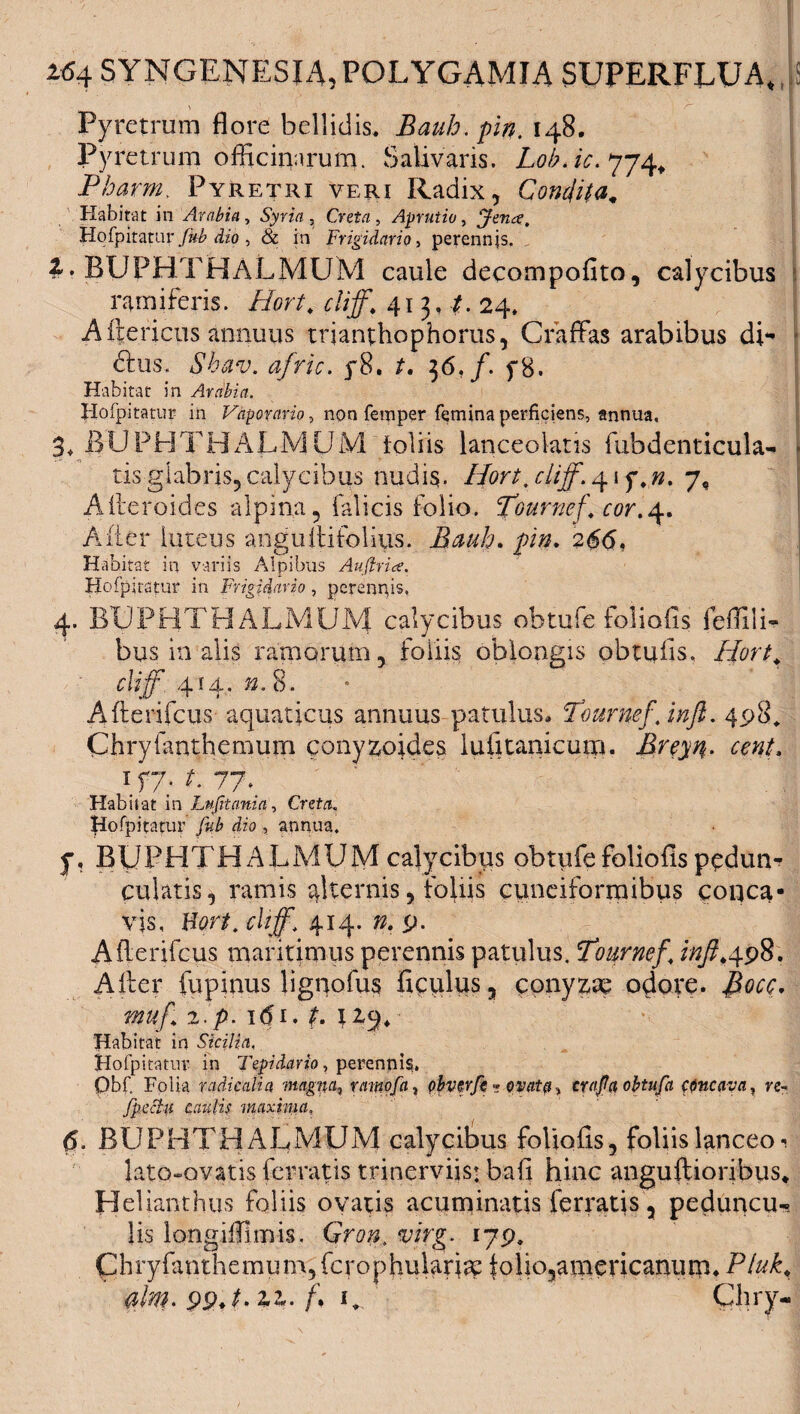 264 SYNGENESIA, POLYGAMIA SUPERFLUA.
Pyretrum flore bellidis. Bauh. pin. 148.
Pyretrum officinarum. Salivaris. Lob. ic. 774.
Pharm. PYRETRI VERI Radix, Condita.
Habitat in Arabia, Syria, Creta, Aprutio, Jenæ.
Hoſpitatur ſub dio, & in Frigidario, perennis.
2. BUPHTHALMUM caule decompoſito, calycibus
ramiferis. Hort. cliff. 413. t. 24.
Aſtericus annuus trianthophorus, Craffas arabibus di-
ctus. Shav. afric. 58. t. 36. f. 58.
Habitat in Arabia.
Hoſpitatur in Vaporario, non ſemper ſemina perficiens, annua.
3. BUPHTHALMUM foliis lanceolatis ſubdenticula-
tis glabris, calycibus nudis. Hort. cliff. 415. n. 7.
Aſteroides alpina, ſalicis folio. Tournef. cor. 4.
Aſter luteus anguſtifolius. Bauh. pin. 266.
Habitat in variis Alpibus Auſtriæ.
Hoſpitatur in Frigidario, perennis.
4. BUPHTHALMUM calycibus obtuſe folioſis ſeſſili-
bus in alis ramorum, foliis oblongis obtuſis. Hort.
cliff 414. n. 8.
Aſteriſcus aquaticus annuus patulus. Tournef. inſt. 498.
Chryſanthemum conyzoides luſitanicum. Breyn. cent.
157. t. 77.
Habitat in Luſitania, Creta.
Hoſpitatur ſub dio, annua.
5. BUPHTHALMUM calycibus obtuſe folioſis pedun-
culatis, ramis alternis, foliis cuneiformibus conca-
vis. Hort. cliff. 414. n. 9.
Aſteriſcus maritimus perennis patulus. Tournef. inſt. 498.
Aſter ſupinus lignoſus ſiculus, conyzæ odore. Bocc.
muſ. 2. p. 161. t. 129.
Habitat in Sicilia.
Hoſpitatur in Tepidario, perennis.
Obſ. Folia radicalia magna, ramoſa, obverſe-ovata, craſſa obtuſa concava, re-
ſpectu caulis maxima.
6. BUPHTHALMUM calycibus folioſis, foliis lanceo-
lato-ovatis ſerratis trinerviis: baſi hinc anguſtioribus.
Helianthus foliis ovatis acuminatis ſerratis, peduncu-
lis longiſſimis. Gron. virg. 179.
Chryſanthemum, ſcrophulariæ folio, americanum. Pluk.
alm. 99. t. 22. f. 1.
Chry-